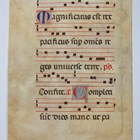 Magnificatus est rex
pacificus sup omes re
ges universe terre. ps.
Confitet. a Complet
sunt dies marie ut pa